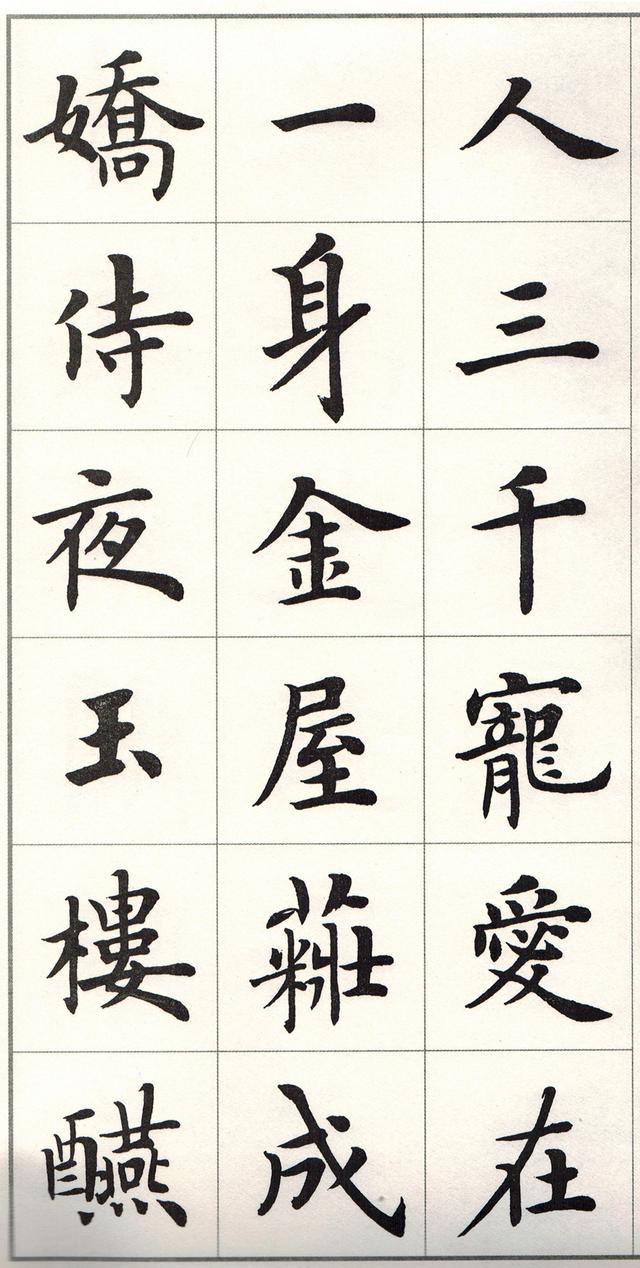 人三千寵愛在
一身金屋糚成
嬌侍夜玉樓醼